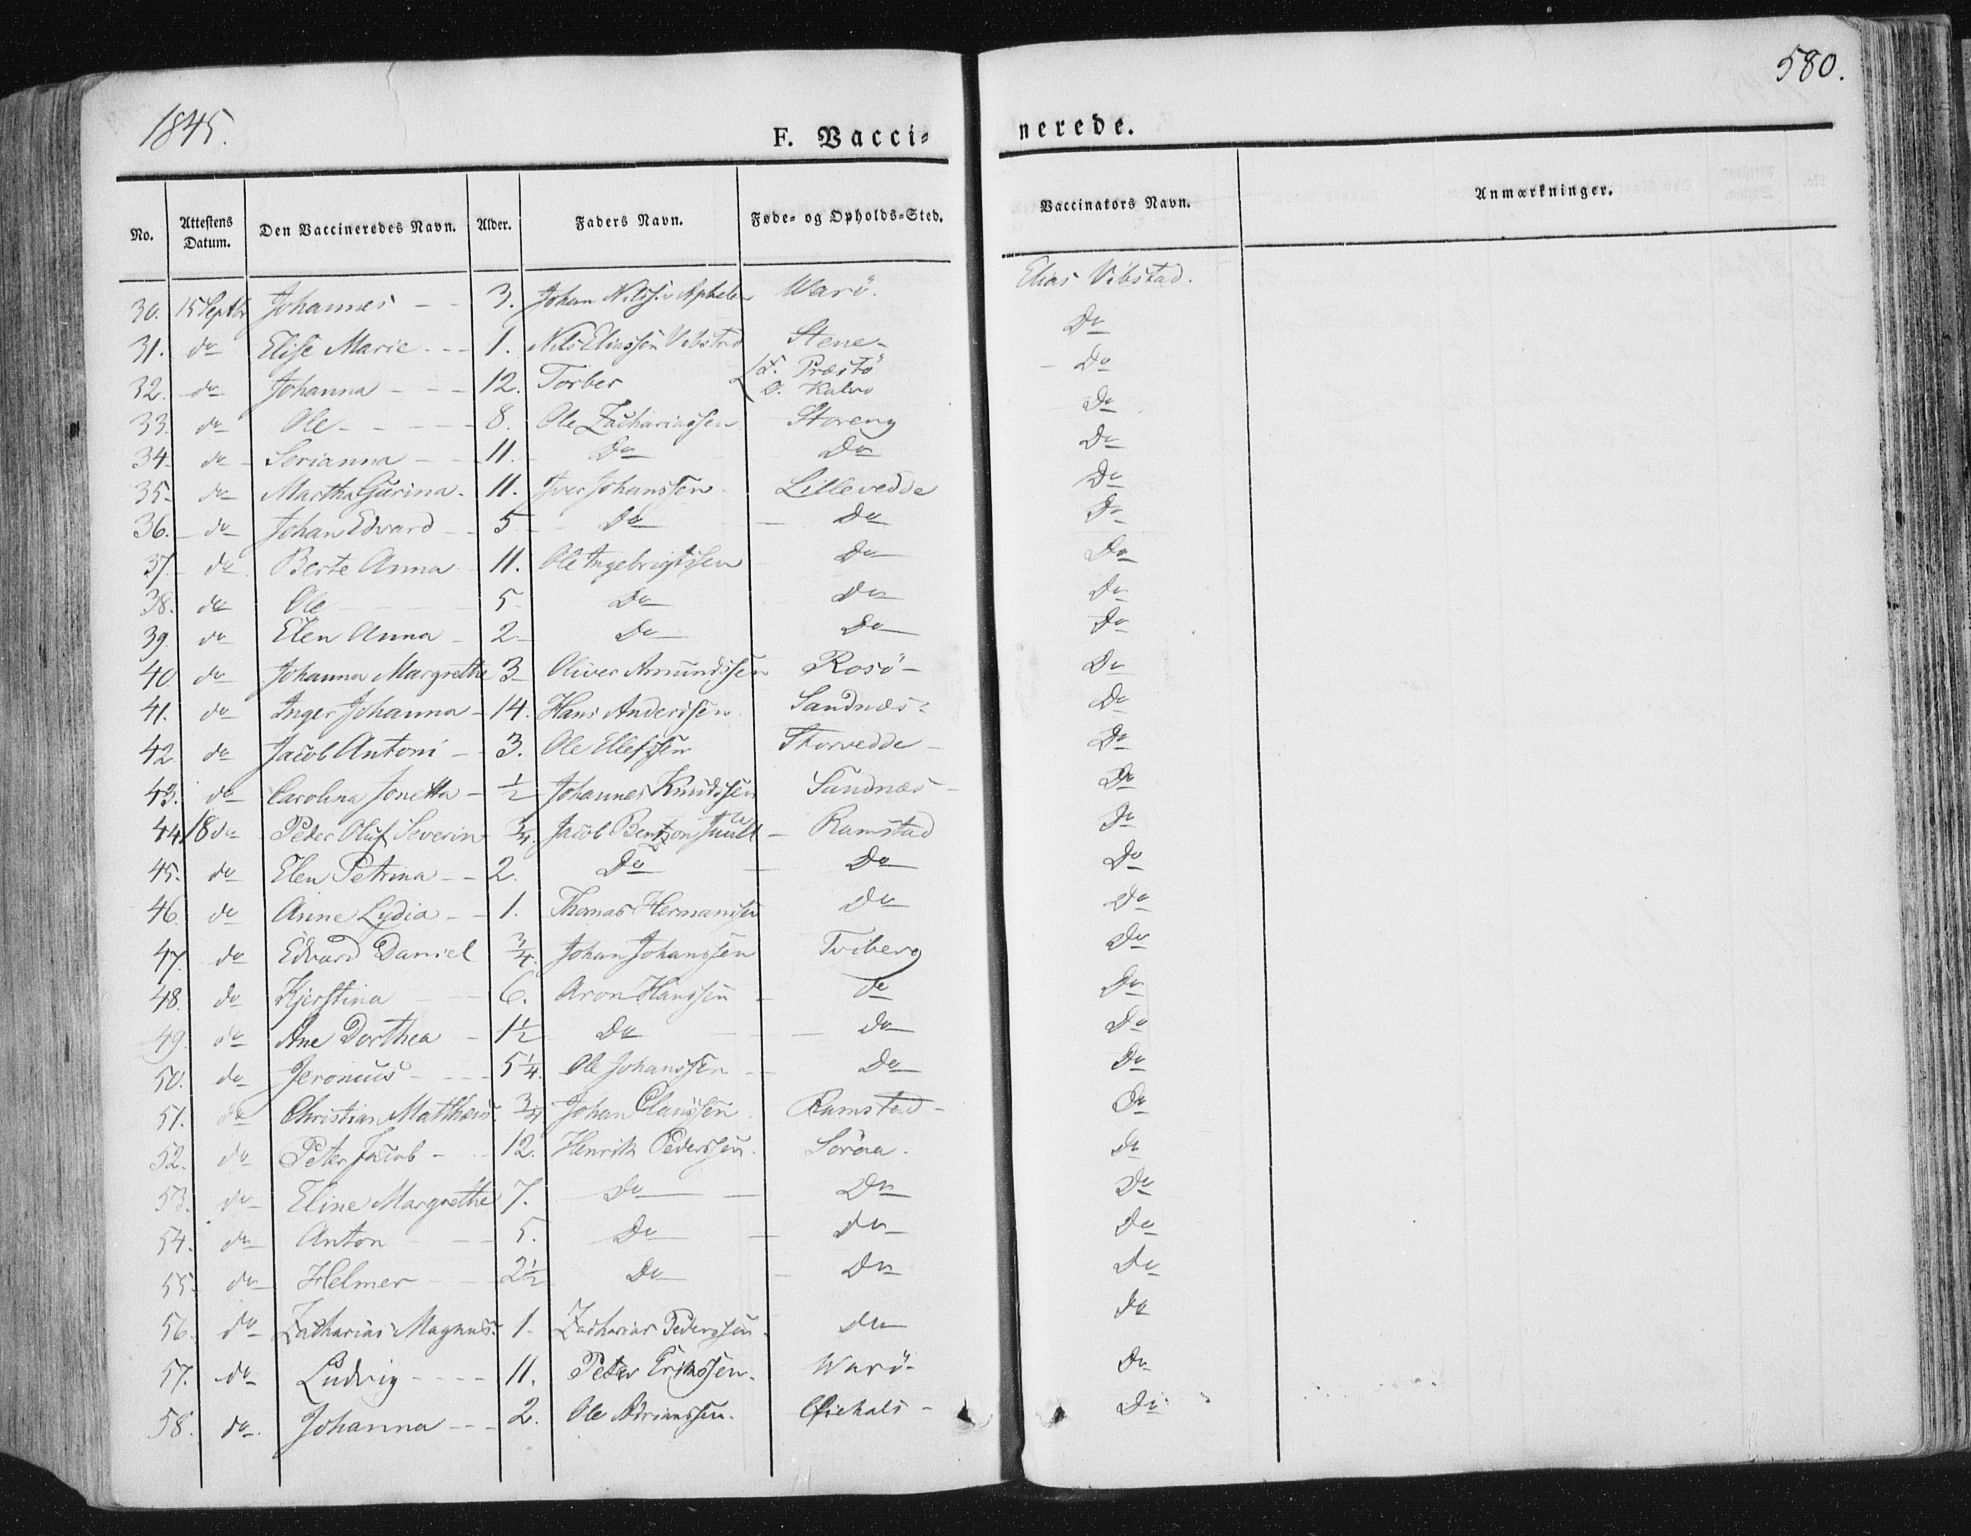 1845.
580.
F. Vacci=
nerede.
No. Attestens Datum. Den Vaccineredes Navn. Alder. Faders Navn. Føde= og Opholds=Sted. Vaccinators Navn. Anmærkninger.
30. 15 Septbr Johannes - - 3. Johan Nilssen Warö. Elias Vibstad.
31. do Elise Marie - - 1. Nils Eliassen Vibstad Stene - Do
32. do Johanna - - - 12. Torber F. Præstö O. Kalvo - Do
33. do Ole - - - - 8. Ole Zachariassen Storeng Do
34. do Serianna - - 11. Do Do Do
35. do Martha Gurina - 11. Iver Johanssen Lillevedde Do
36. do Johan Edvard - - 5 - Do - Do Do
37. do Berte Anna 11. Ole Ingebrigtssen Do Do
38. do Ole 5 Do Do Do
39. do Elen Anna - 2 - Do Do Do
40 do Johanna Margrethe 3 Oliver Amundssen Rosö - Do
41. do Inger Johanna - 14. Hans Anderssen Sandnæs - Do
42 do Jacob Antoni - 3. Ole Ellefssen Storvedde - Do
43. do Carolina Jonetta - 1/2 Johannes Knudssen Sandnæs - Do
44 18 do Peder Oluf Severin 3/4. Jacob Bentzon - Ramstad Do
45. do Elen Petrina - - 2. Do - Do Do
46. do Anne Lydia - - 1. Thomas Hermanssen Do Do
47. do Edvard Daniel 3/4. Johan Johanssen Tviberg Do
48. do Kjerstina - - 6. Aron Hanssen - do Do
49. do Ane Dorthea - 1 1/2 Do - - Do Do
50. do Jeronius - - - 5 1/4. Ole Johanssen - - Do Do
51. do Christian Mathæus. 3/4 Johan Claussen Ramstad - Do
52. do Peter Jacob - - 12. Henrik Pederssen. Soröen. Do
53. do Eline Margrethe 7. Do - Do Do
54. do Anton - - - 5. Do - Do Do
55. do Helmer - - 2 1/2 Do - Do Do
56. do Zacharias Magnus. 1. Zacharias Pederssen. do Do
57. do Ludvig - - - - 11. Peter Erikssen. Warö - Do
58. do. Johanna - - - 2. Ole Adrianssen. Øiehals - Do